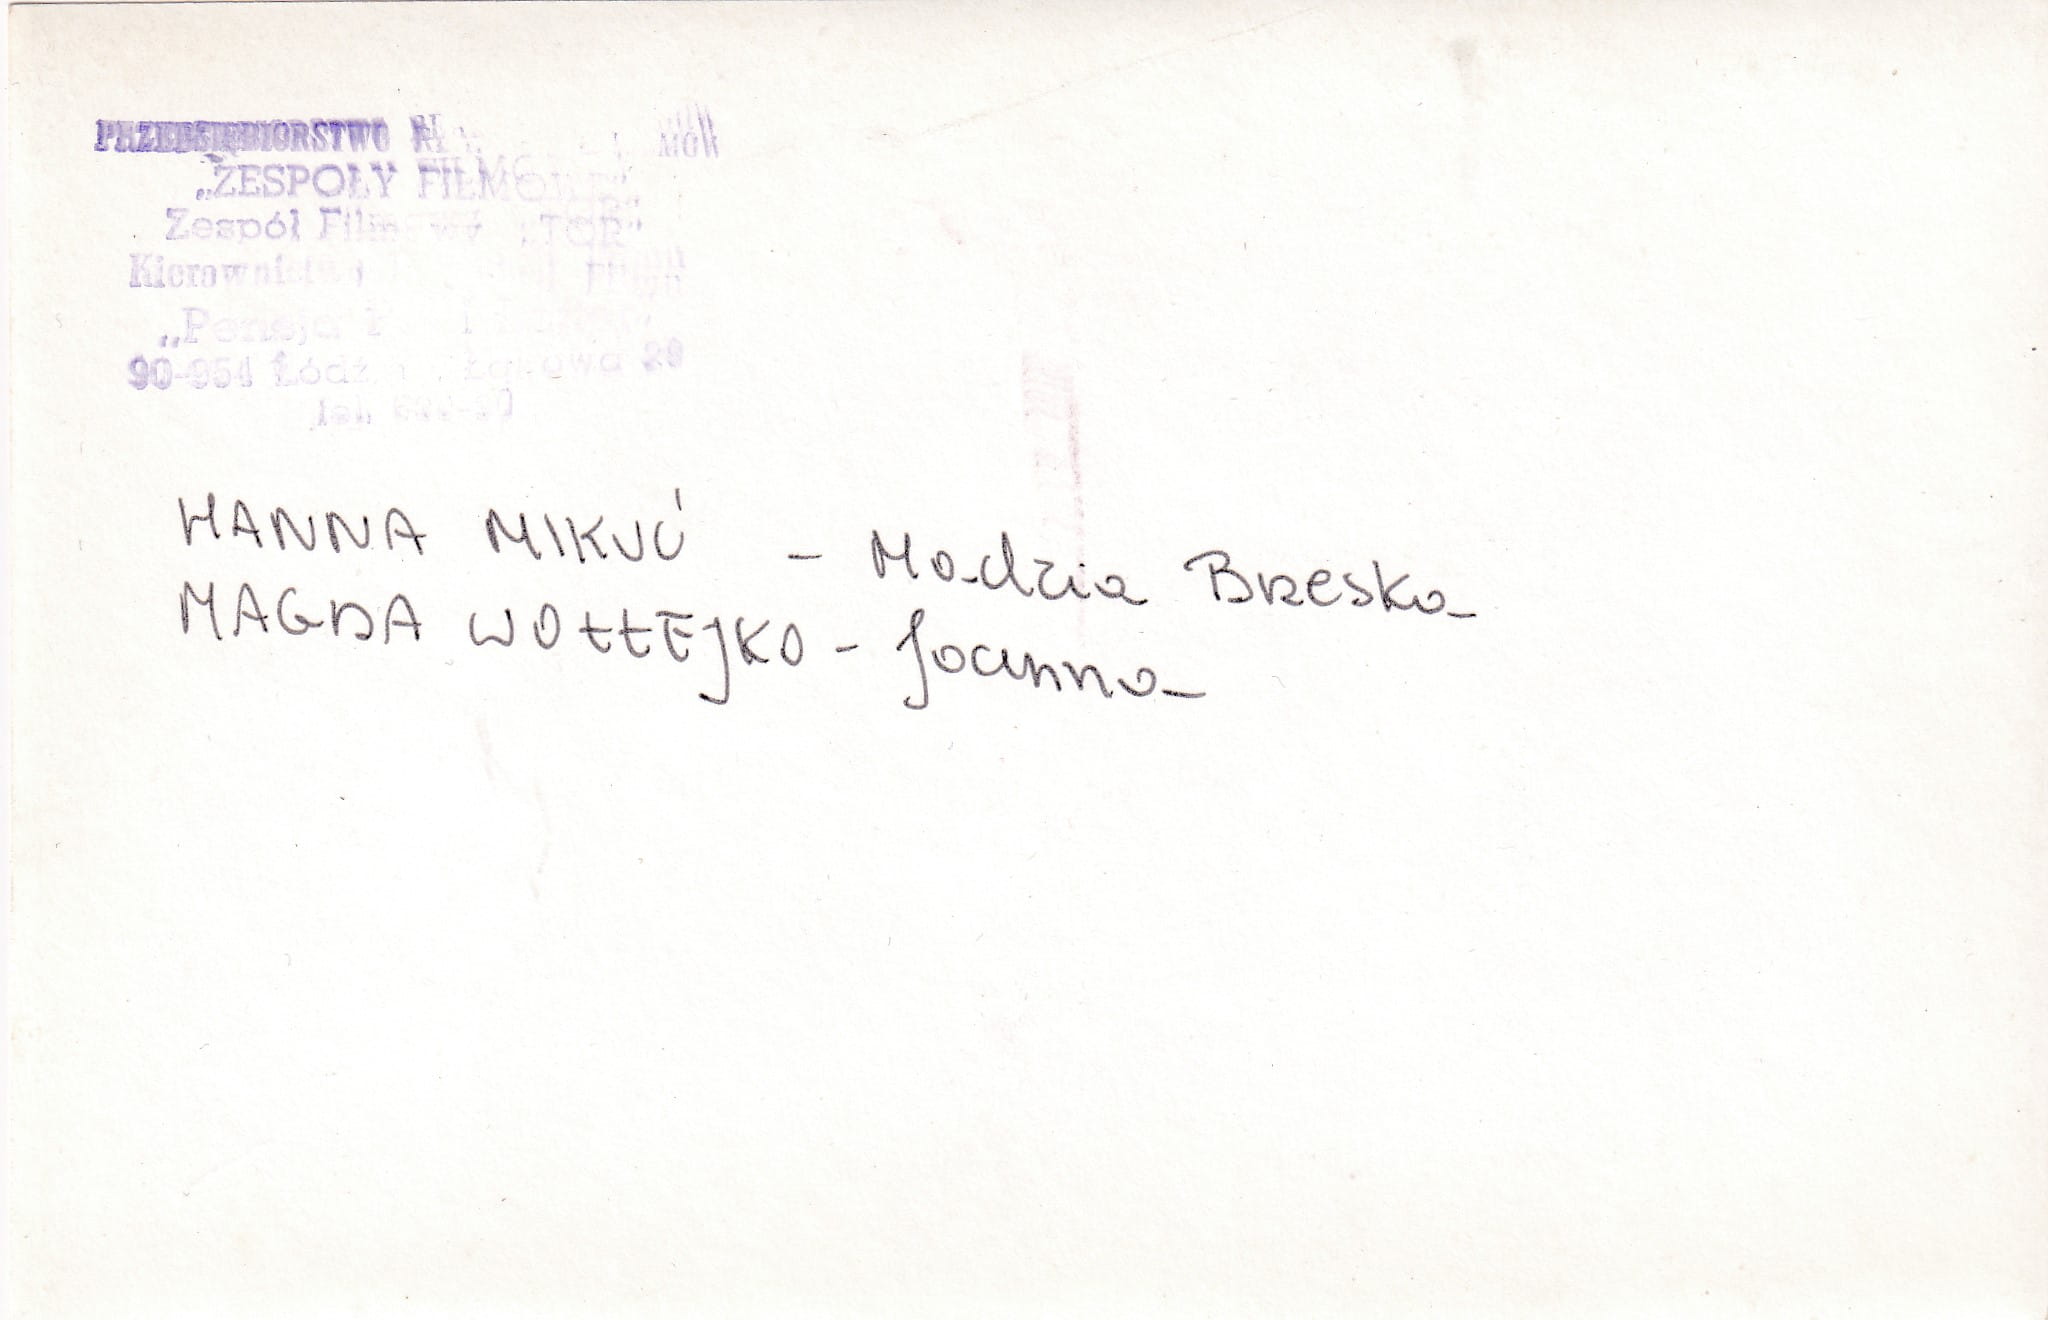 PRZEDSIĘBIORSTWO
„ZESPOŁY FILMOWE”
Zespół Filmowy „TOR”
Kierownictwo Filmu
„Pensja
90-954 Łódź Łąkowa 29
tel.
HANNA MIKUĆ - Madzia Brzeska
MAGDA WOŁŁEJKO - Joanna